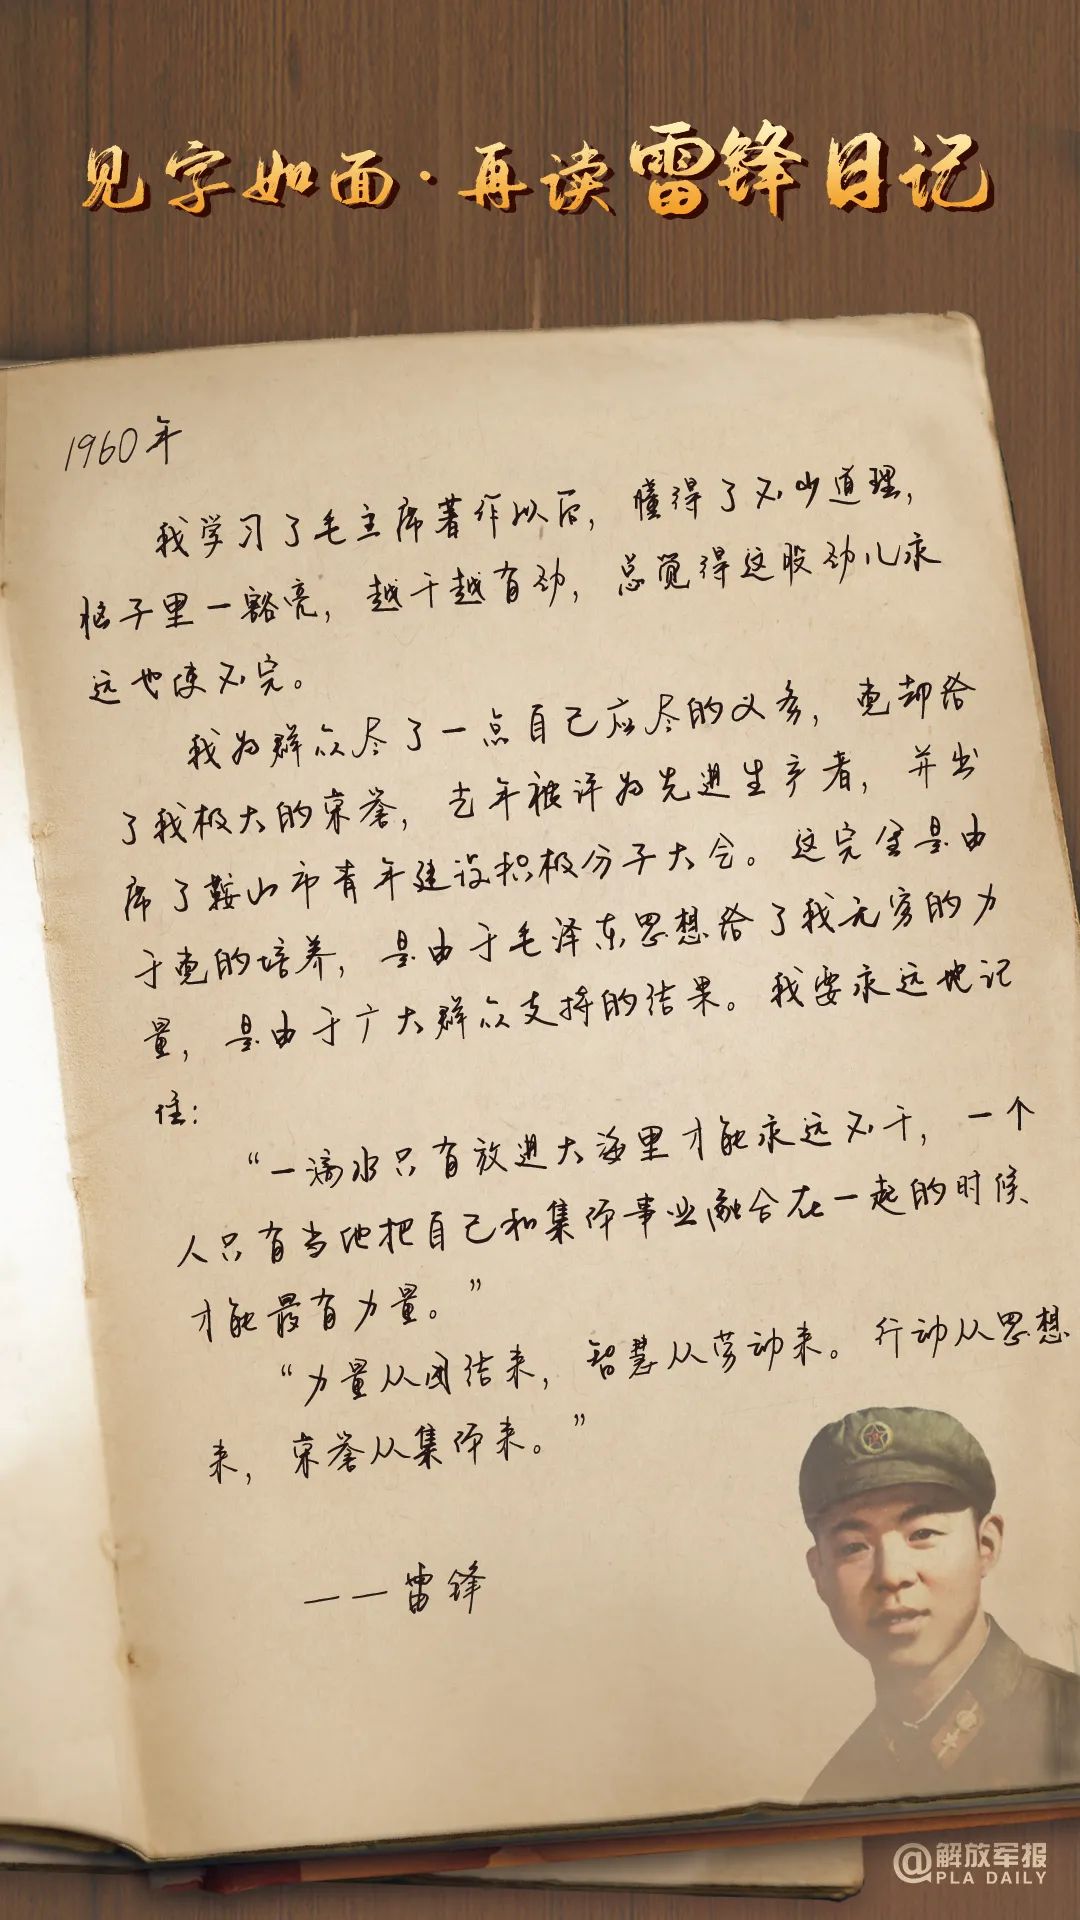 见字如面·再读雷锋日记
1960年
我学习了毛主席著作以后，懂得了不少道理，
脑子里一豁亮，越干越有劲，总觉得这股劲儿永
远也使不完。
我为群众尽了一点自己应尽的义务，党却给
了我极大的荣誉，去年被评为先进生产者，并出
席了鞍山市青年建设积极分子大会。这完全是由
于党的培养，是由于毛泽东思想给了我无穷的力
量，是由于广大群众支持的结果。我要永远地记
住：
“一滴水只有放进大海里才能永远不干，一个
人只有当他把自己和集体事业融合在一起的时候
才能最有力量。”
“力量从团结来，智慧从劳动来。行动从思想
来，荣誉从集体来。”
——雷锋
@解放军报
PLA DAILY